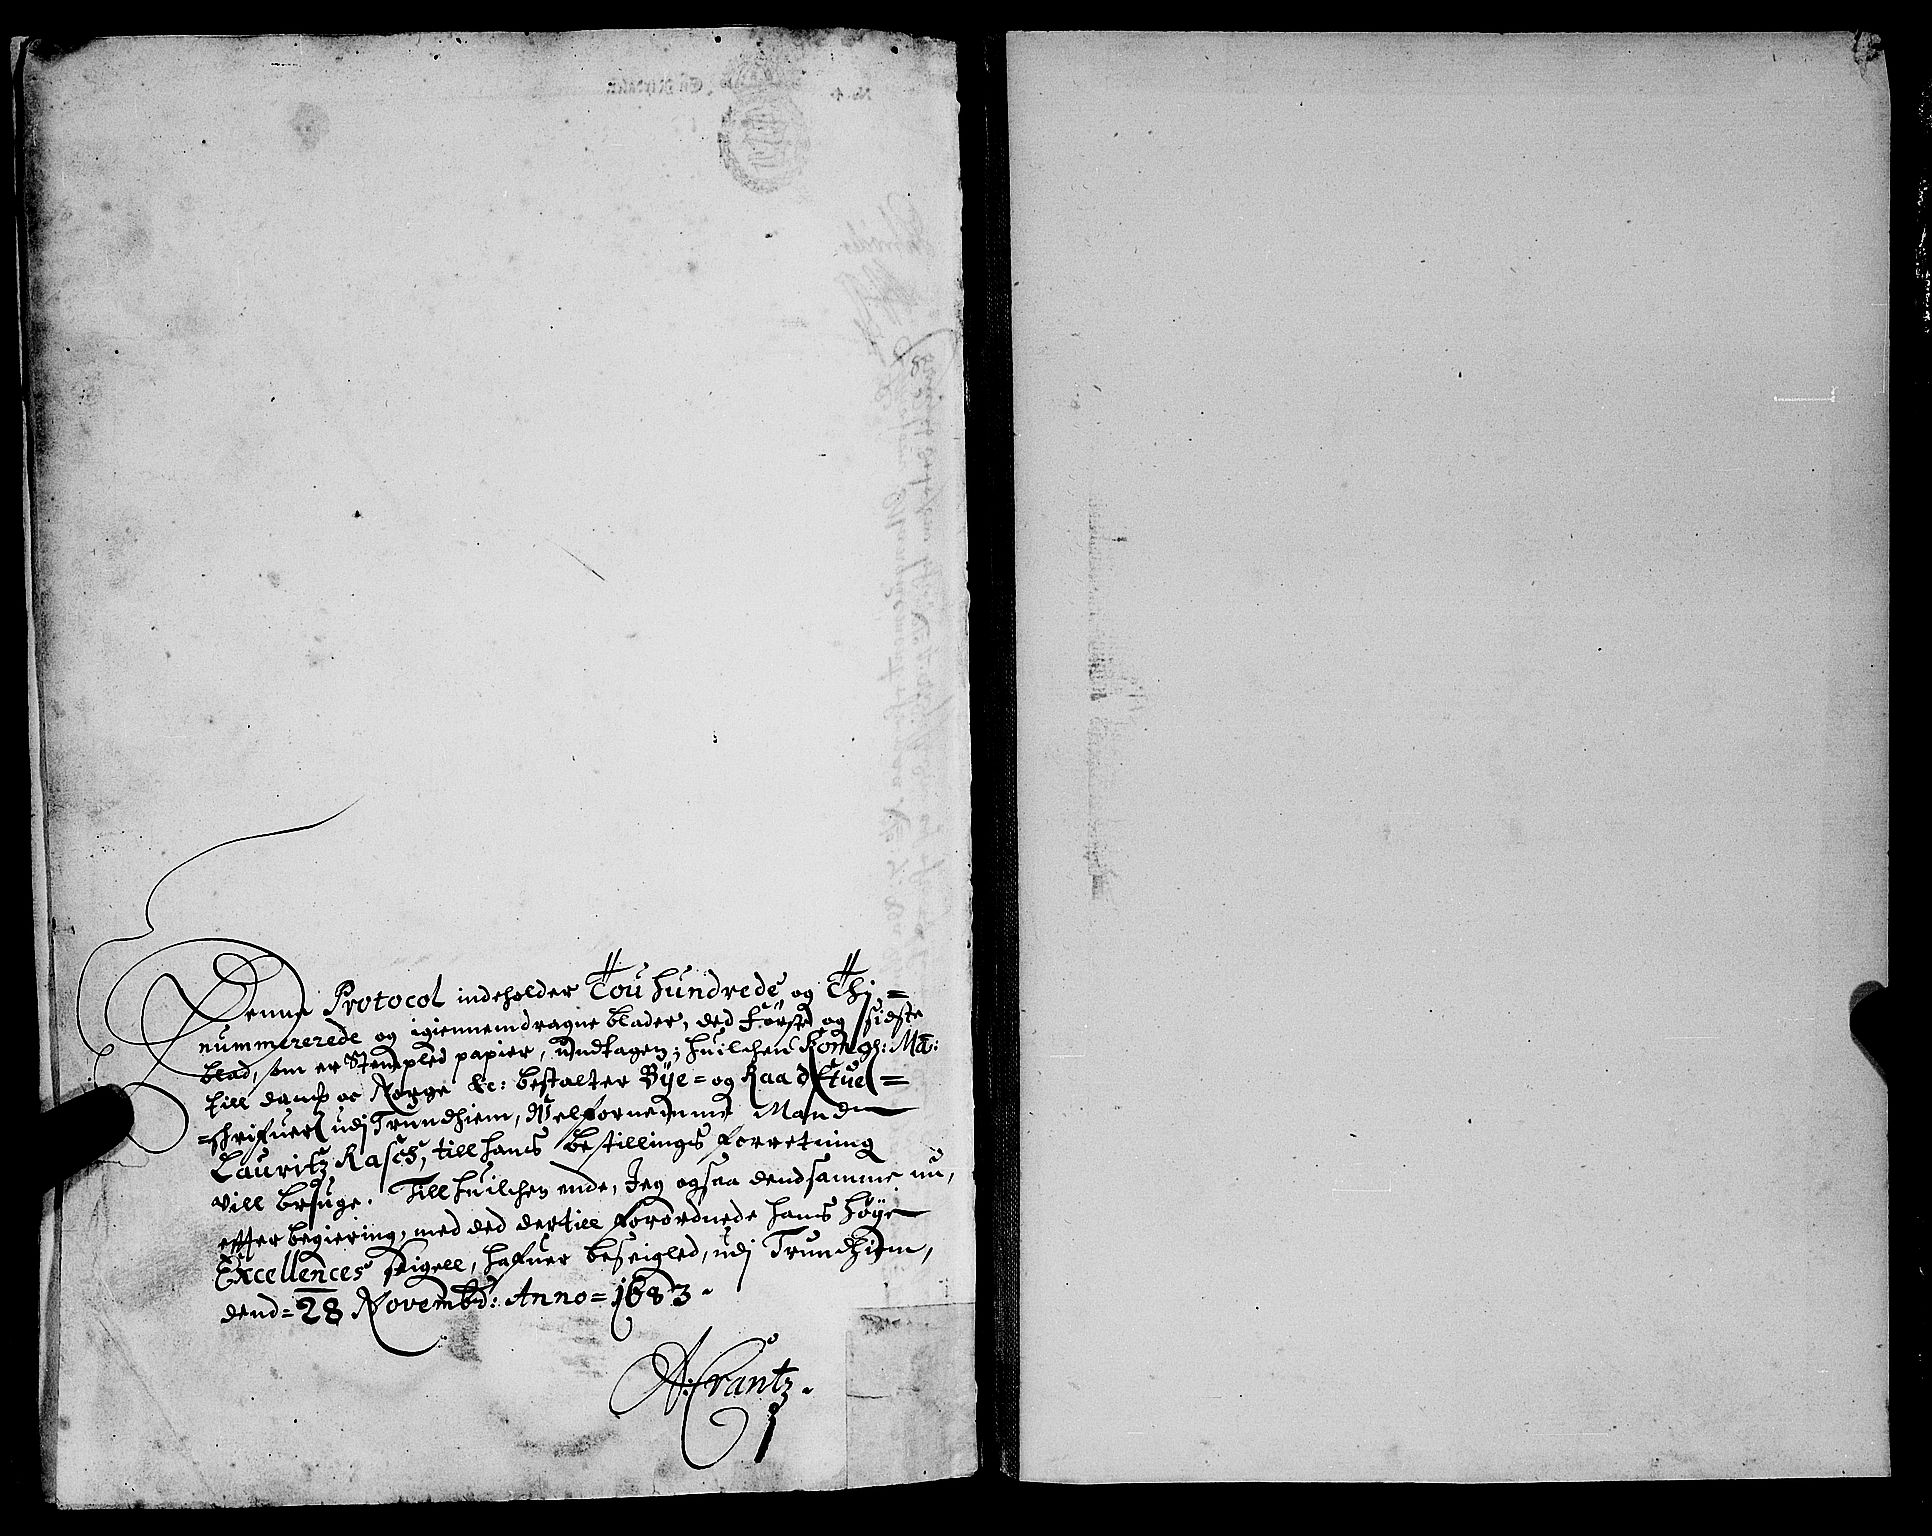 Denne Protocol indeholder Tou hundrede og Thj=
nummererede og igiennemdragne blader, ded Første og sidste
blad, som er Stemplet papier, undtagen; huilchen Kongl: Ma:
till Danm: oc Norge &c: bestalter Bÿe= og Raadstue=
=schrifuer udj Trundhiem, Welfornemme Mand
Lauritz Rasch, till hans bestillings forretning
vill bruge. Till huilchen ende, Jeg ogsaa dend samme nu,
effter begiering, med ded dertill forordnede hans høÿe
Excellences Sigell, hafuer beseigled, udj Trundhiem,
dend= 28 Novembr: Anno= 1683.
A: Crantz.